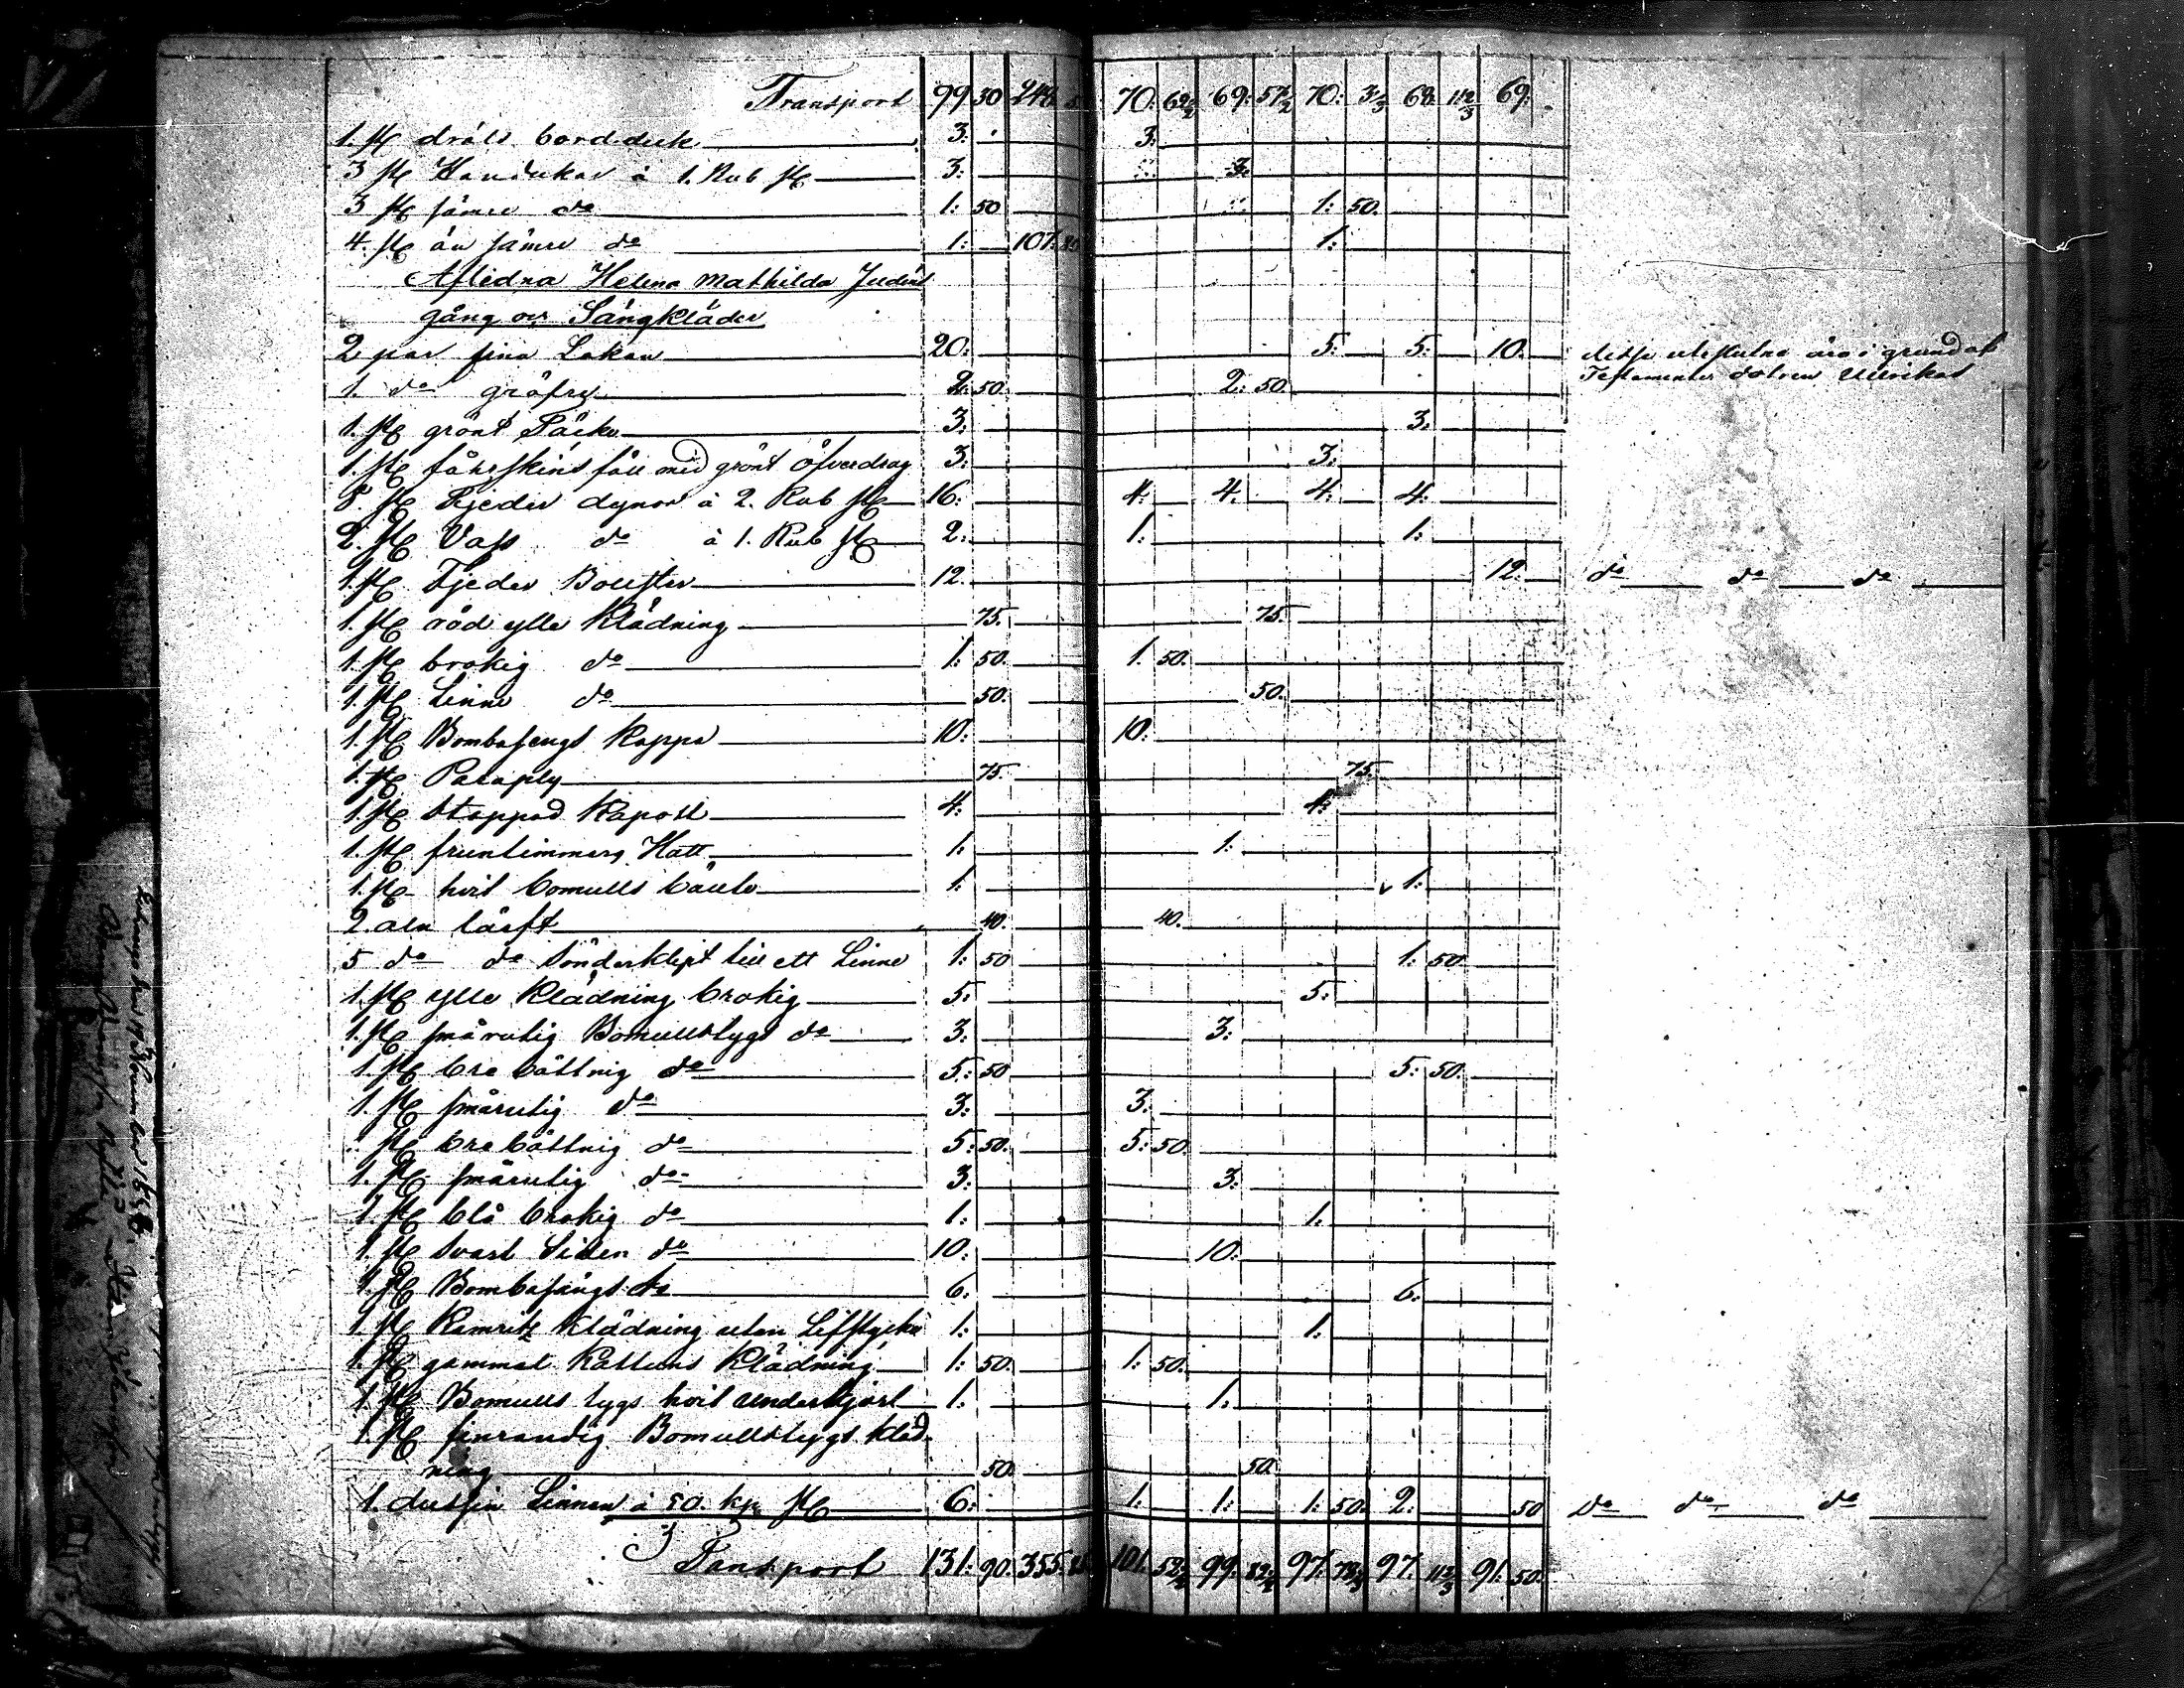 Transport 99 30 248 70: 62½ 69: 57½ 70: 3⅓ 68: 11⅔ 69: -
1. st dräls bordduk 3: 3:
3 st Handukar à 1. Rub st 3: 3:
3 st sämre do 1: 50 1: 50.
4. st än sämre do 1: 107: 80 1:
Aflidna Helena Mathilda Judins
gång och Sängkläder
2 par fina Lakan 20: 5: 5: 10. desse uteslutne äro i grund af
Testamentes dottren Ullrikas
1. do gröfre 2: 50. 2: 50.
1. st grönt Täcke 3: 3:
1. st fårskins fäll med grönt öfverdrag 3: 3:
8. st Fjeder dynor à 2. Rub st 16: 4: 4: 4: 4:
2. st Vass do à 1. Rub st 2: 1: 1:
1. st Fjeder Bolster 12. 12. do do do
1. st röd ylle Klädning 75. 75.
1. st brokig do 1: 50. 1. 50.
1. st Linne do 50. 50.
1. st Bombasengs Kappa 10: 10:
1. st Paraply 75. 75.
1. st stoppad Kapott 4: 4:
1. st fruntimmers Hatt 1: 1:
1. st hvit bomulls 1: 1:
2. aln lärft 40. 40.
5 do do sönderklipt till ett Linne 1: 50 1: 50
1. st ylle Klädning brokig 5: 5:
1. st smårutig Bomullstygs do 3: 3:
1. st bre do 5: 50 5: 50.
1. st smårutig do 3: 3:
st bre do 5: 50. 5: 50.
1. st smårutig do 3: 3:
1. st blå brokig do 1: 1:
1. st svart Siden do 10: 10:
1. st Bombasängs do 6: 6:
1. st Kamritz Klädning utan Lifstycke 1: 1:
1. st gammal Kattuns Klädning 1: 50. 1: 50.
1. st Bomulls tygs hvit underkjort 1: 1:
1. st finrandig Bomullstygs kläd
ning 50 50
1. dussin Linnen à 50. kp. st 6: 1: 1: 1: 50. 2: 50 Do do do
Transport 131: 90. 355: 101: 99: 97: 97: 11⅔ 91: 50.